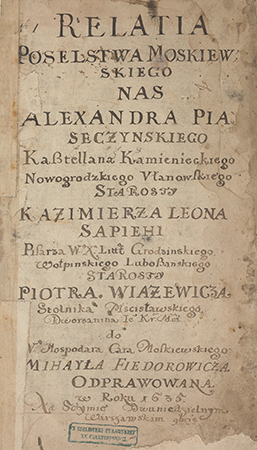 RELATIA
POSELSTWA MOSKIEW
SKIEGO
NAS
ALEXANDRA PIA
SECZYNSKIEGO
Kasztellana Kamienieckiego
Nowogrodzkiego Vlanowskiego
STAROSTY
KAZIMIERZA LEONA
SAPIEHI
Pisarza W X Litt Grodzinskiego
Wołpinskiego Luboszanskiego
STAROSTY
PIOTRA WIAZEWICZA
Stolnika Mscisławskiego
Dworzanina Je Kr Mći
do
Hospodara Cara Moskiewskiego
MIHAYŁA FIEDOROWICZA
ODPRAWOWANA
w Roku 1635
Na Seymie Dwuniedzielnym
Warszawskim
Z BIBLIOTEKI